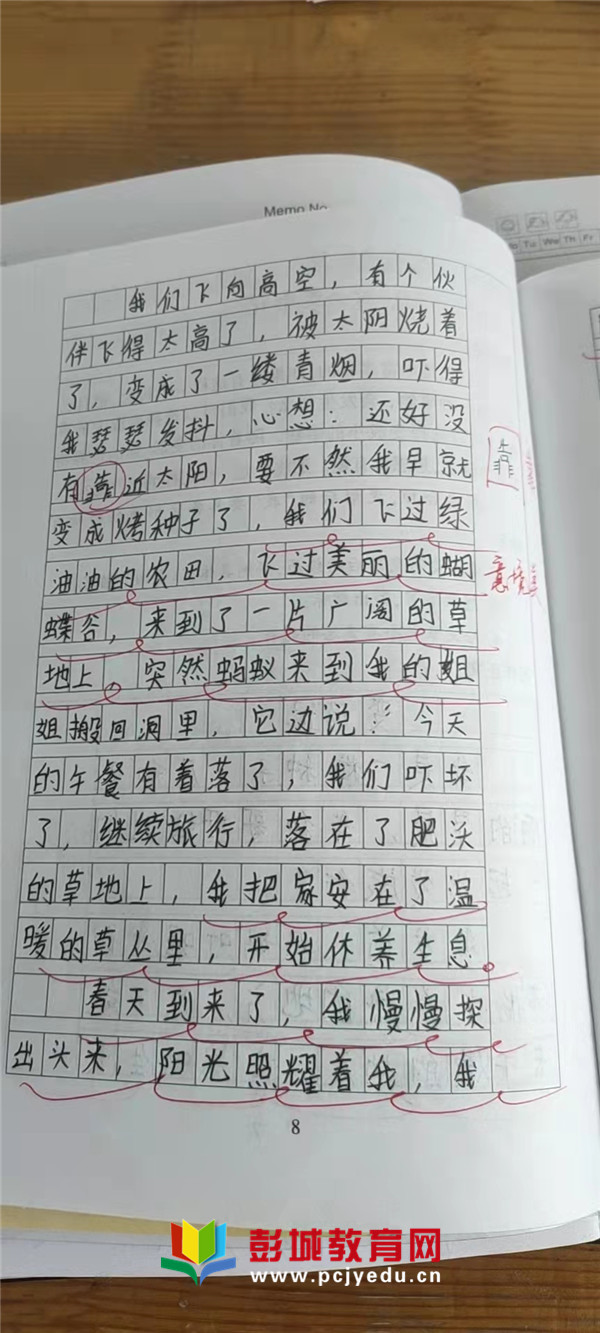 Memo No
Tu We Th Fr
我们飞向高空，有个伙
伴飞得太高了，被太阳烧着
了，变成了一缕青烟，吓得
我瑟瑟发抖，心想：还好没
有靠近太阳，要不然我早就
靠
变成烤种子了，我们飞过绿
油油的农田，飞过美丽的蝴
意境美
蝶谷，来到了一片广阔的草
地上。突然蚂蚁来到我的姐
姐搬回洞里，它边说：今天
的午餐有着落了，我们吓坏
了，继续旅行，落在了肥沃
的草地上，我把家安在了温
暖的草丛里，开始休养生息。
春天到来了，我慢慢探
出头来，阳光照耀着我，我
8
彭城教育网
www.pcjyedu.cn